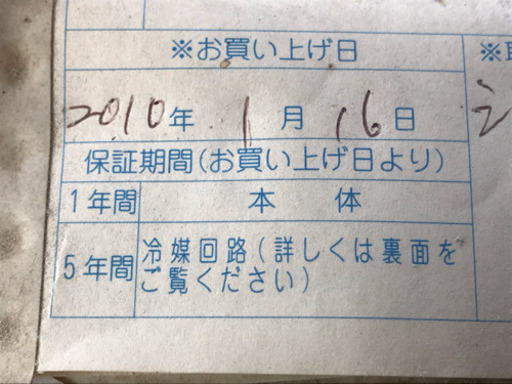 ※お買い上げ日
2010年 1月 16日
保証期間(お買い上げ日より)
1年間 本体
5年間 冷媒回路(詳しくは裏面を
ご覧ください)